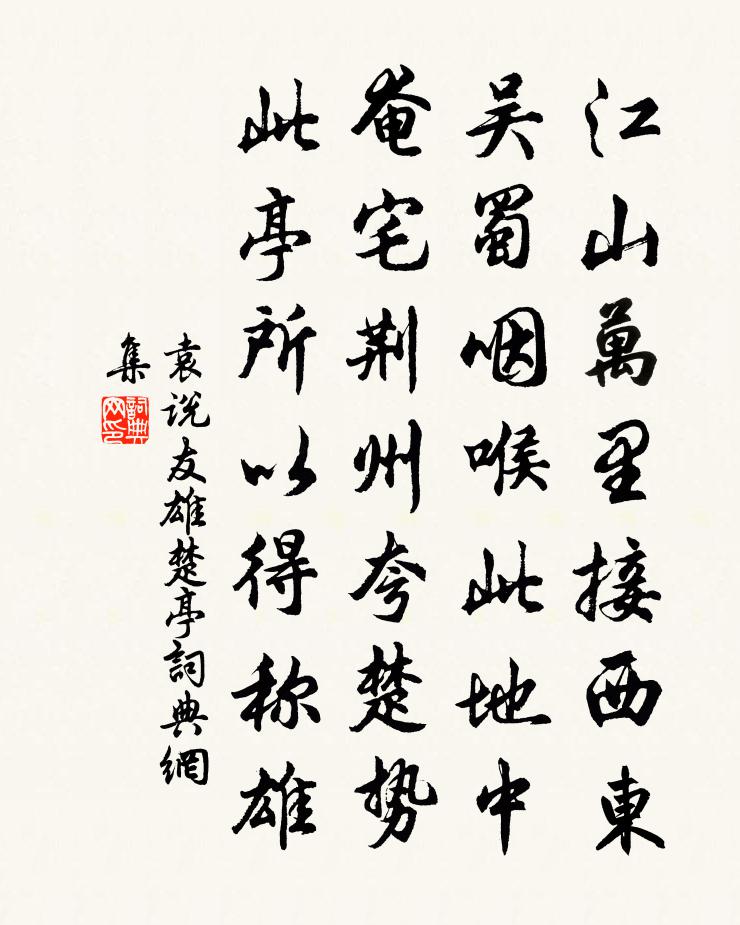 江山萬里接西東
吴蜀咽喉此地中
奄宅荆州夸楚势
此亭所以得称雄
袁说友雄楚亭詞典網
集
詞典网印